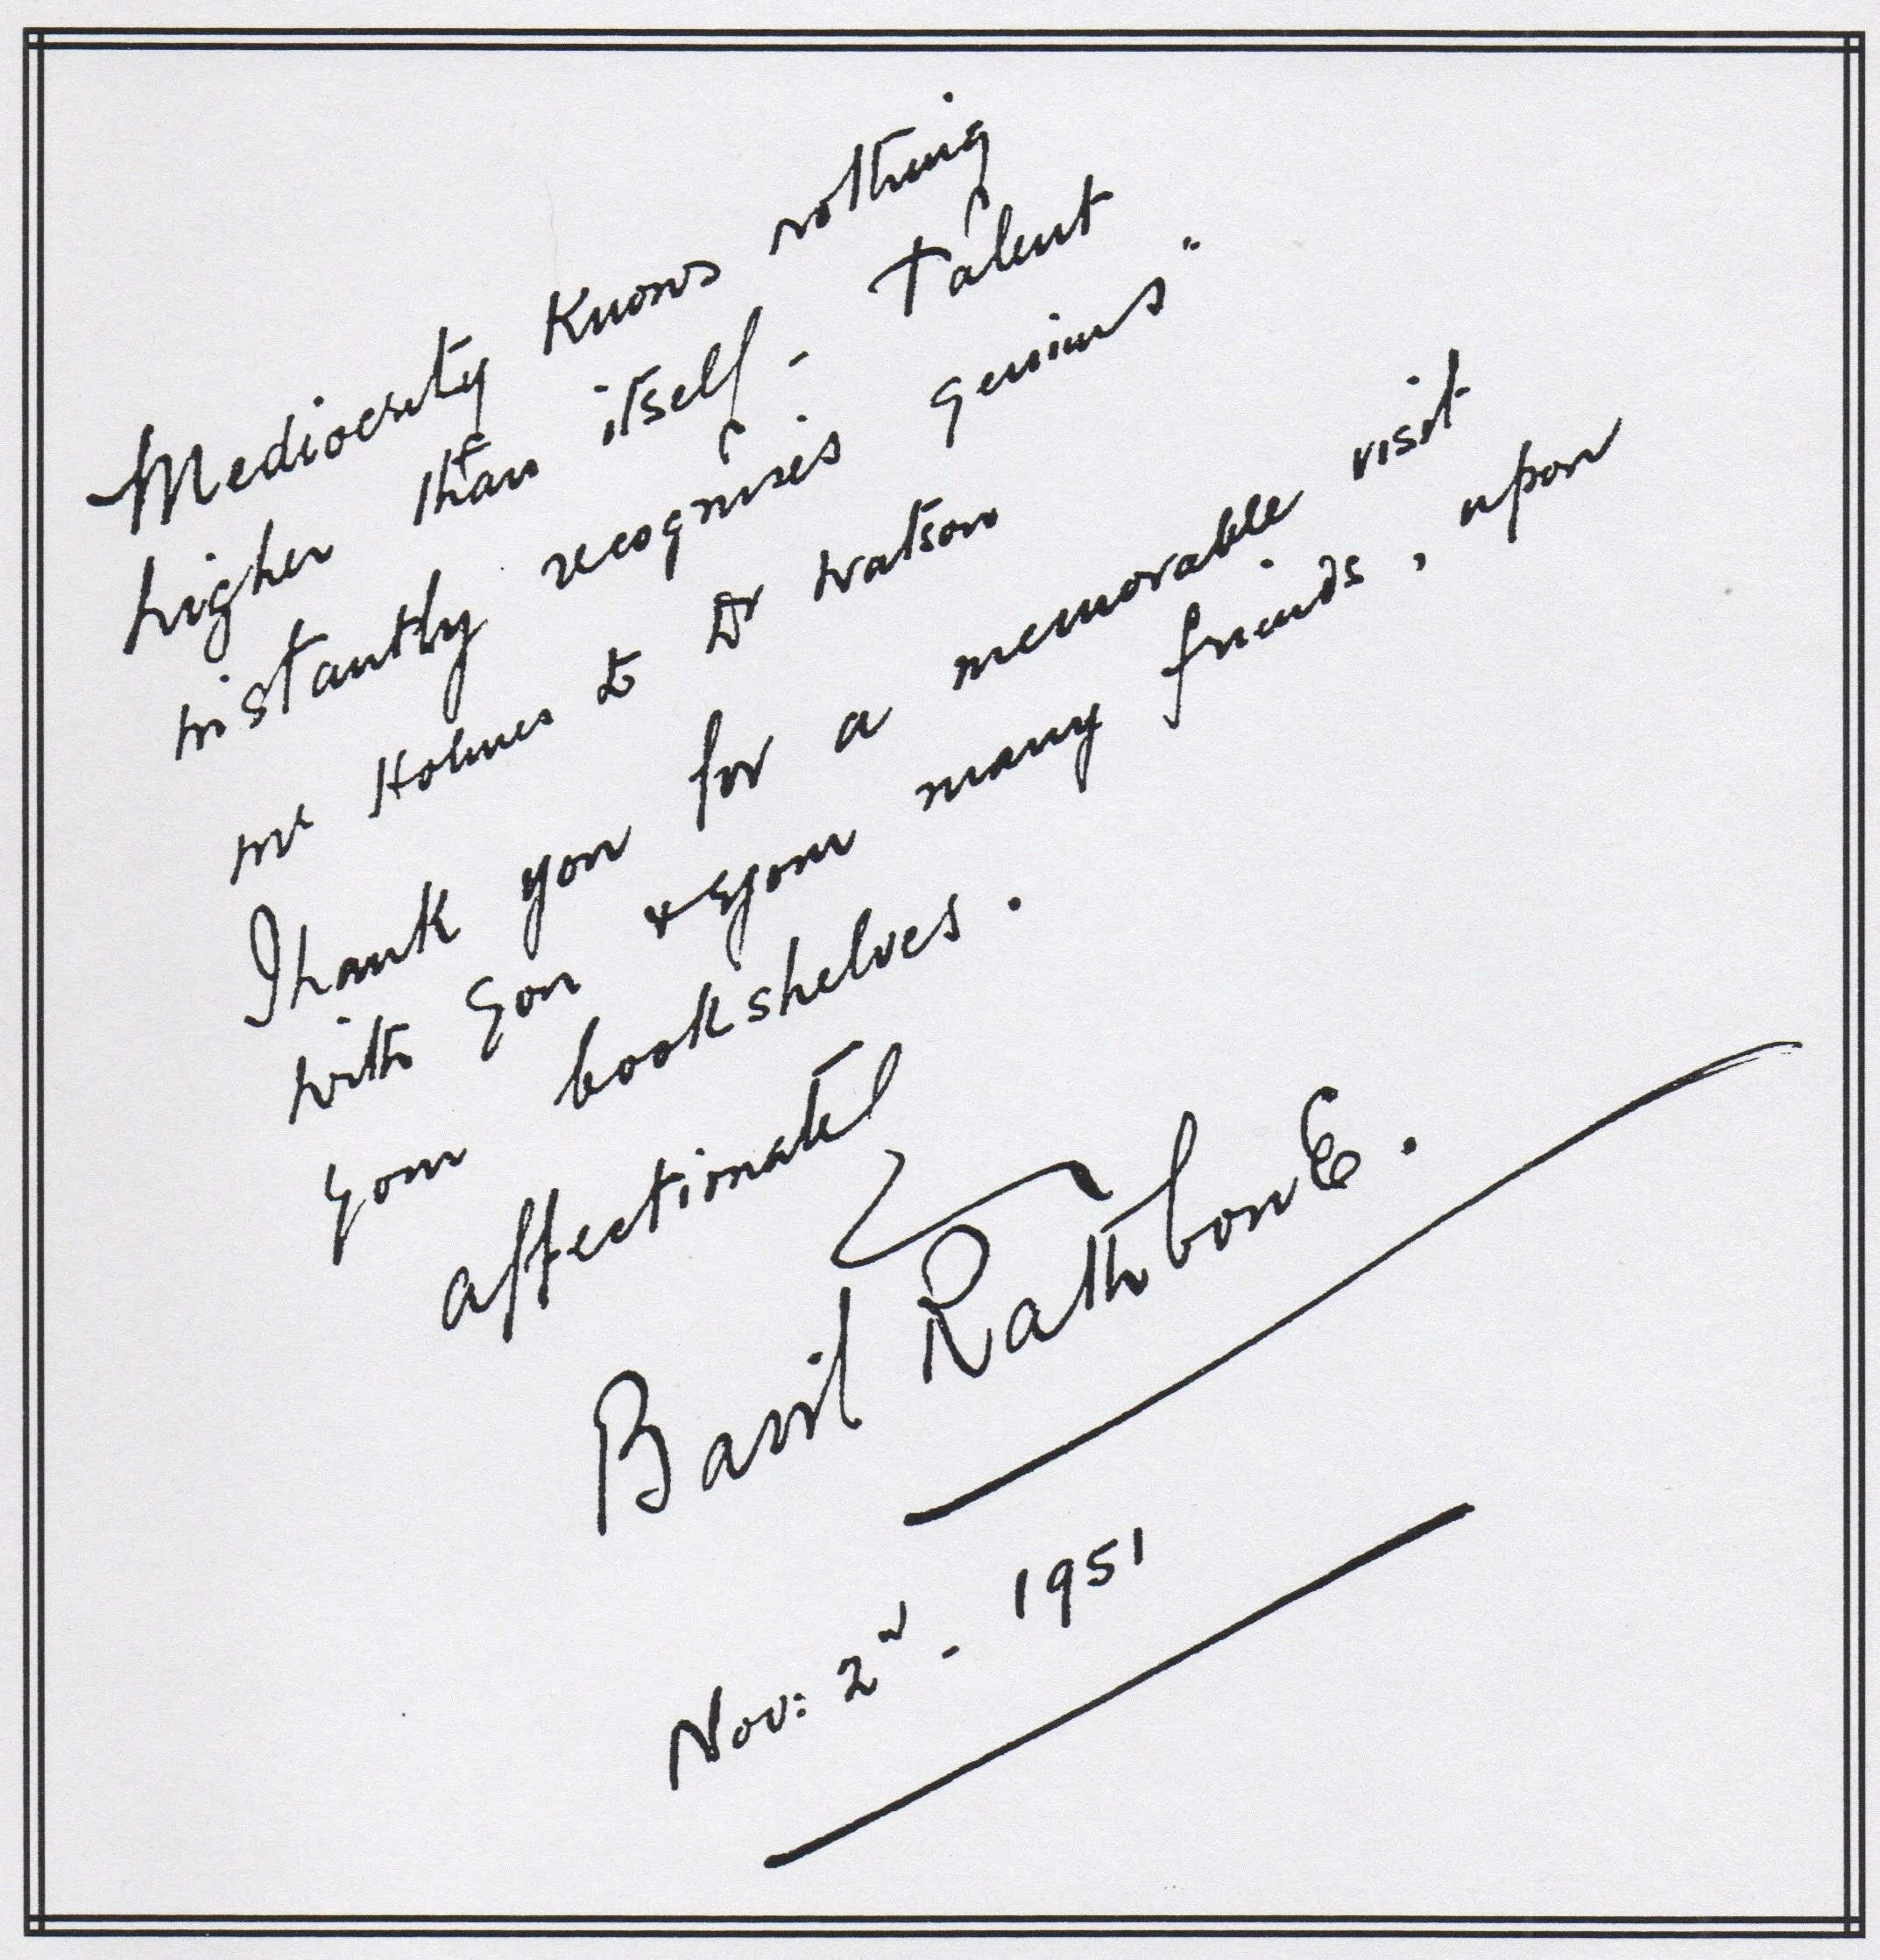 Mediocrity knows nothing
higher than itself - Talent
instantly recognises genius"
Mr Holmes to Dr Watson
Thank you for a memorable visit
with you & your many friends, upon
your bookshelves.
affectionately
Basil RathbonE.
Nov: 2nd - 1951